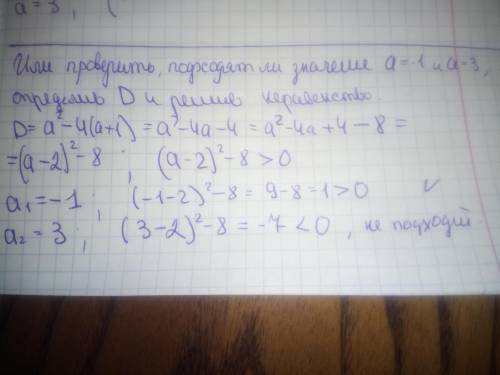 a = 3 ; (
Или проверить, подходят ли значение a=-1 и a=3,
определив D и решив неравенство.
D = a² - 4(a+1) = a² - 4a - 4 = a² - 4a + 4 - 8 =
= (a-2)² - 8 ; (a-2)² - 8 > 0
a₁ = -1 ; (-1-2)² - 8 = 9 - 8 = 1 > 0 ✓
a₂ = 3 ; (3-2)² - 8 = -7 < 0 , не подходит